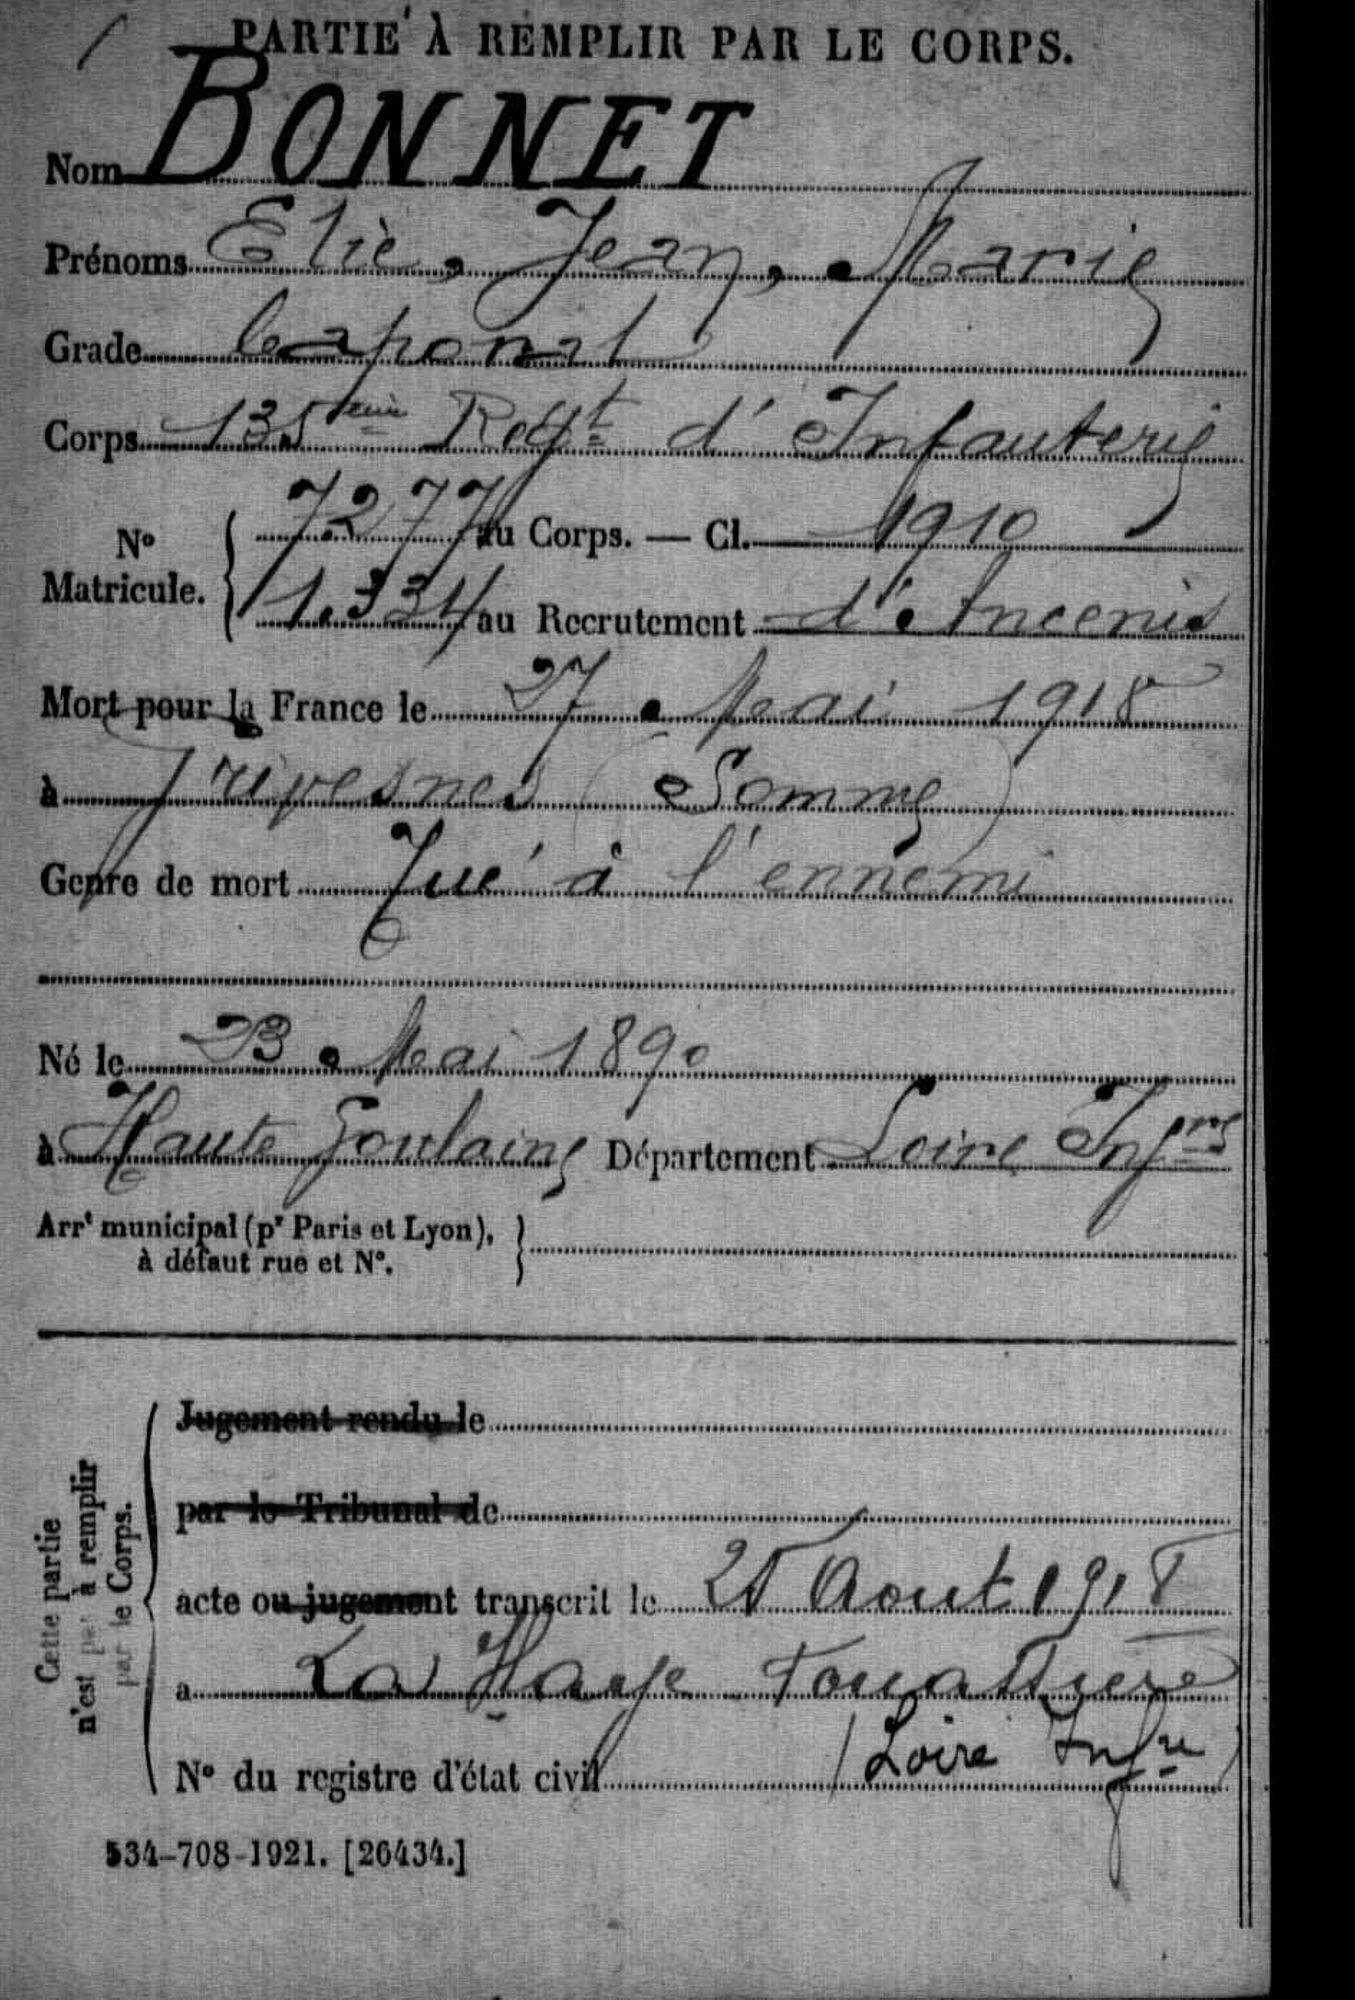 PARTIE À REMPLIR PAR LE CORPS.
Nom BONNET
Prénoms Elie, Jean, Marie
Grade Caporal
Corps 135ème Regt d'Infanterie
No Matricule. { 7277 au Corps. — Cl. 1910
1.334 au Recrutement d'Ancenis
Mort pour la France le 27 Mai 1918
à Grivesnes (Somme)
Genre de mort Tué à l'ennemi
Né le 23 Mai 1890
à Haute Goulaine Département Loire Infre
Arrt municipal (pr Paris et Lyon),
à défaut rue et No. }
Cette partie
n'est pas à remplir
par le Corps.
Jugement rendu le
par le Tribunal de
acte ou jugement transcrit le Aout 1918
a La Haye Fouassiere
(Loire Infre)
No du registre d'état civil
534-708-1921. [26434.]